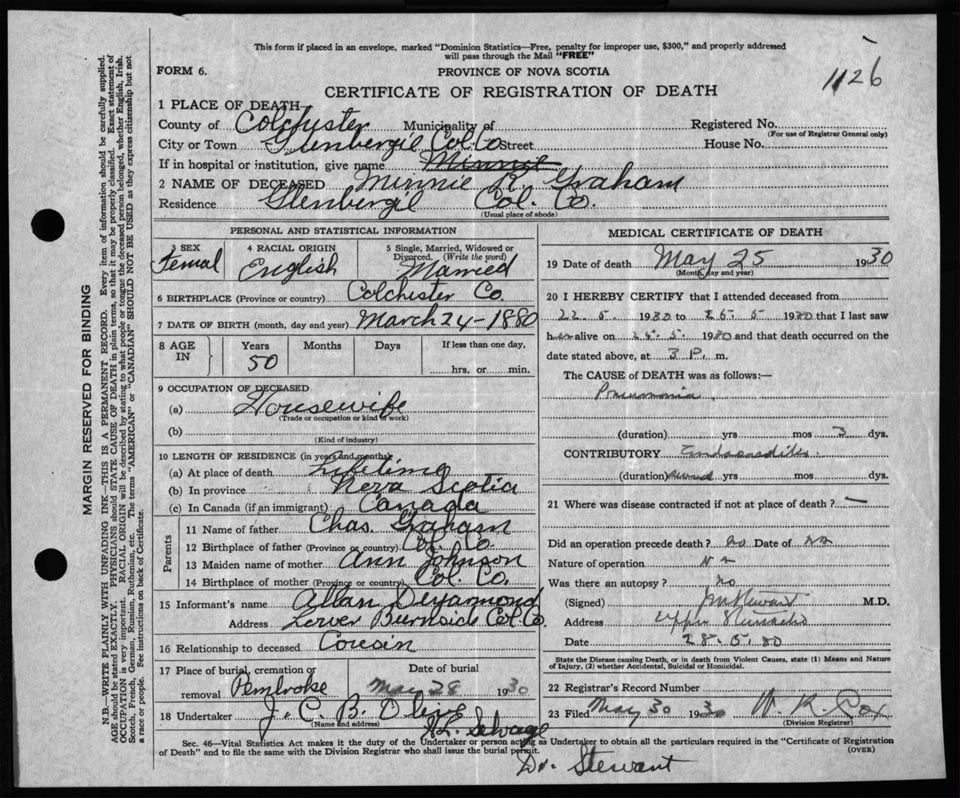 This form if placed in an envelope, marked "Dominion Statistics—Free, penalty for improper use, $300," and properly addressed
will pass through the Mail "FREE"
FORM 6.
PROVINCE OF NOVA SCOTIA
1126
CERTIFICATE OF REGISTRATION OF DEATH
1 PLACE OF DEATH
County of Colchester Municipality of Registered No.
(For use of Registrar General only)
City or Town Glenbergil Col. Co Street House No.
If in hospital or institution, give name Minnie
2 NAME OF DECEASED Minnie R. Graham
Residence Glenbergil Col. Co.
(Usual place of abode)
PERSONAL AND STATISTICAL INFORMATION
3 SEX Femal
4 RACIAL ORIGIN English
5 Single, Married, Widowed or Divorced. (Write the word) Married
6 BIRTHPLACE (Province or country) Colchester Co.
7 DATE OF BIRTH (month, day and year) March 24-1880
8 AGE IN Years Months Days If less than one day,
50 hrs. or min.
9 OCCUPATION OF DECEASED
(a) Housewife
(Trade or occupation or kind of work)
(b)
(Kind of industry)
10 LENGTH OF RESIDENCE (in years and months)
(a) At place of death Lifetime
(b) In province Nova Scotia
(c) In Canada (if an immigrant) Canada
Parents
11 Name of father Chas. Graham
12 Birthplace of father (Province or country) Col. Co.
13 Maiden name of mother Ann Johnson
14 Birthplace of mother (Province or country) Col. Co.
15 Informant's name Allan
Address Lower Burnside Col. Co.
16 Relationship to deceased Cousin
17 Place of burial, cremation or removal Pembroke
Date of burial May 28 1930
18 Undertaker J. C. B. Olive
(Name and address)
MEDICAL CERTIFICATE OF DEATH
19 Date of death May 25 1930
(Month, day and year)
20 I HEREBY CERTIFY that I attended deceased from
22.5. 1930 to 25.5 1930 that I last saw
alive on 1930 and that death occurred on
date stated above, at 3 P. m.
The CAUSE of DEATH was as follows:—
Pneumonia
(duration) yrs mos 3 dys.
CONTRIBUTORY Endocarditis
(duration) yrs mos dys.
21 Where was disease contracted if not at place of death? —
Did an operation precede death? no Date of
Nature of operation
Was there an autopsy? no
(Signed) Stewart M.D.
Address Upper
Date 28.5.30
State the Disease causing Death, or in death from Violent Causes, state (1) Means and Nature of Injury, (2) whether Accidental, Suicidal or Homicidal.
22 Registrar's Record Number
23 Filed May 30 1930 W. R. Cox
(Division Registrar)
H. L. Selvage
Sec. 46—Vital Statistics Act makes it the duty of the Undertaker or person acting as Undertaker to obtain all the particulars required in the "Certificate of Registration
of Death" and to file the same with the Division Registrar who shall issue the burial permit. (OVER)
Dr. Stewart
MARGIN RESERVED FOR BINDING
N.B.—WRITE PLAINLY WITH UNFADING INK—THIS IS A PERMANENT RECORD. Every item of information should be carefully supplied.
AGE should be stated EXACTLY. PHYSICIANS should STATE CAUSE OF DEATH in plain terms, so that it may be properly classified. Exact statement of
OCCUPATION is very important. RACIAL ORIGIN will be described by stating to what people or tongue the deceased person belonged, whether English, Irish,
Scotch, French, German, Russian, Ruthenian, etc. The terms "AMERICAN" or "CANADIAN" SHOULD NOT BE USED as they express citizenship but not
a race or people. See instructions on back of Certificate.